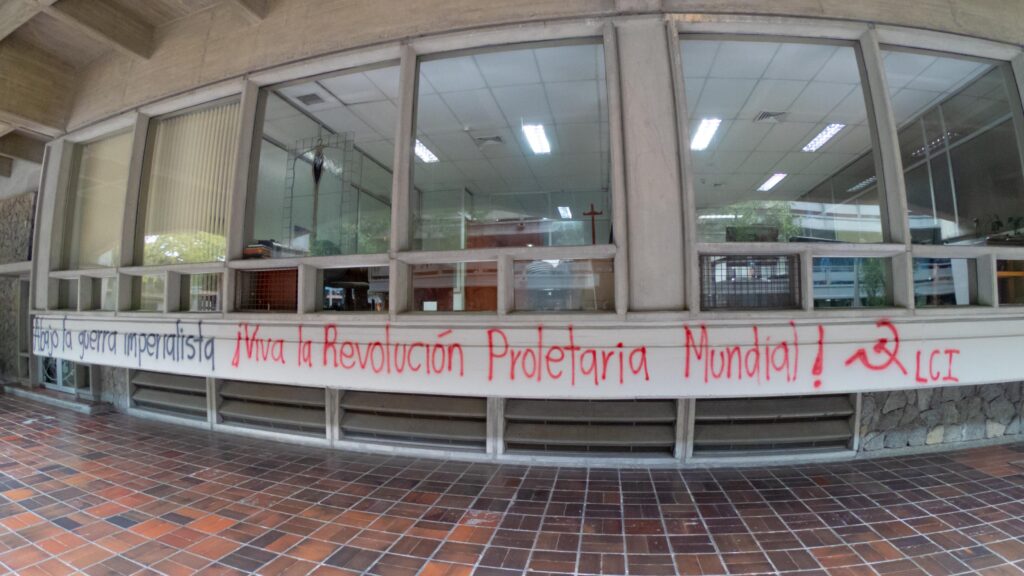 Abajo la guerra imperialista ¡Viva la Revolución Proletaria Mundial! LCI